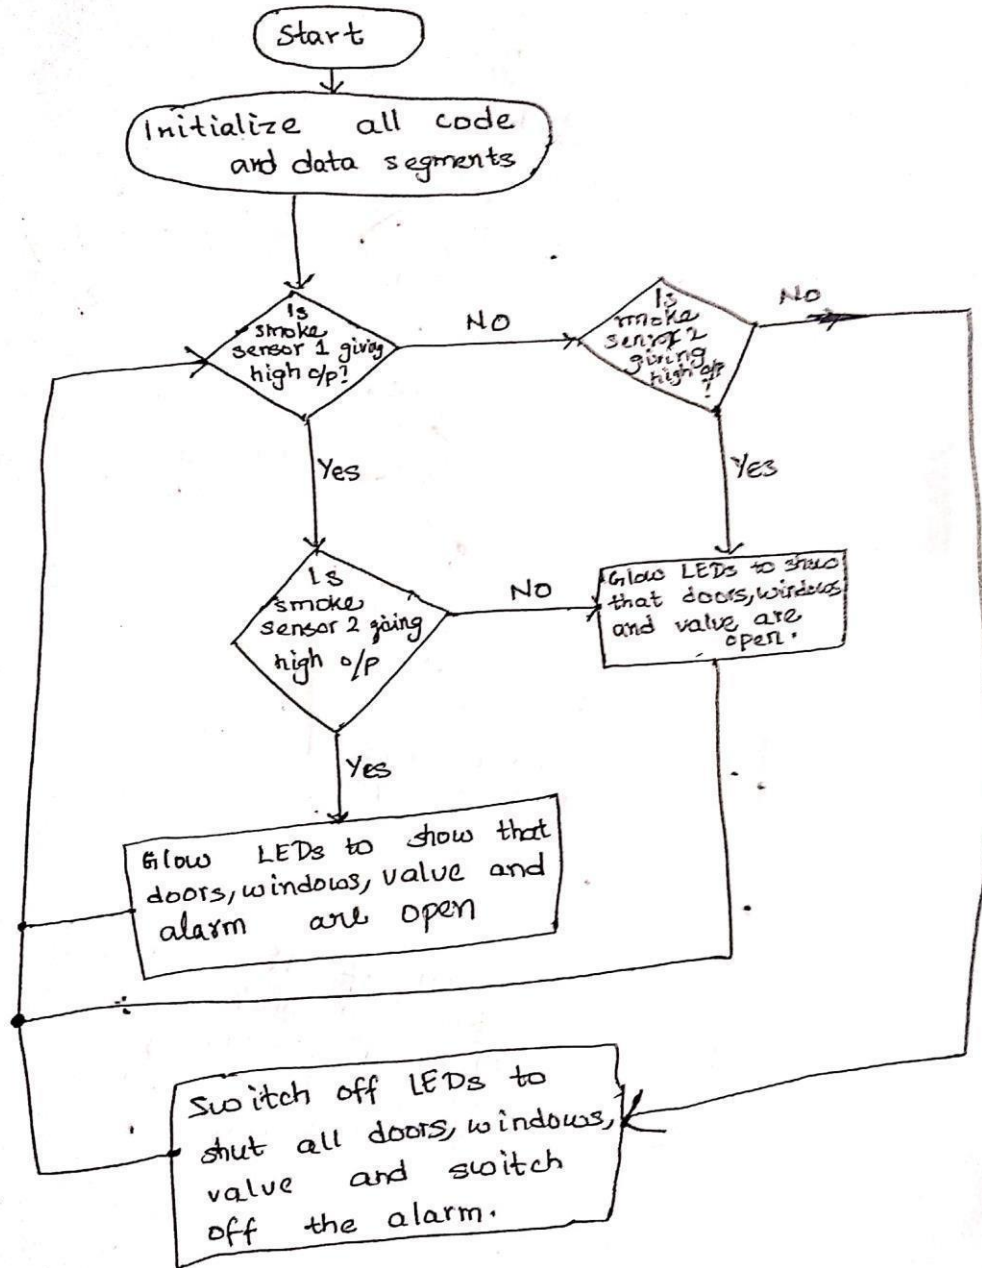 Start
Initialize all code
and data segments
Is
smoke
sensor 1 giving
high o/p?
NO
Is
smoke
sensor 2
giving
high o/p
?
NO
Yes
Yes
Is
smoke
sensor 2 giving
high o/p
NO
Glow LEDs to show
that doors, windows
and value are
open.
Yes
Glow LEDs to show that
doors, windows, value and
alarm are open
Switch off LEDs to
shut all doors, windows,
value and switch
off the alarm.